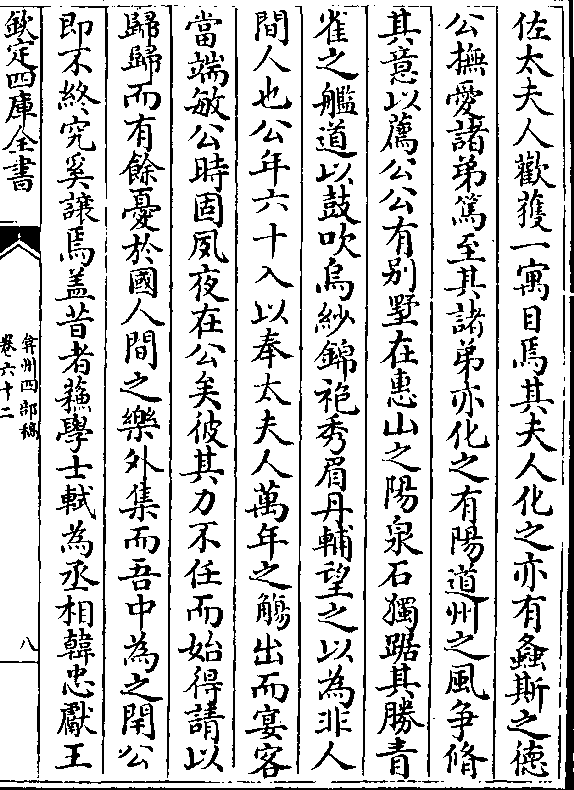 佐太夫人歡獲一寓目焉其夫人化之亦有螽斯之德
公撫愛諸弟篤至其諸弟亦化之有陽道州之風争脩
其意以薦公公有别墅在惠山之陽泉石獨踞其勝青
雀之艦道以鼓吹烏紗錦袍秀眉丹輔望之以為非人
間人也公年六十入以奉太夫人萬年之觴出而宴客
當端敏公時固夙夜在公矣彼其力不任而始得請以
歸歸而有餘憂於國人間之樂外集而吾中為之閈公
即不終究奚讓焉盖昔者蘓學士軾為丞相韓忠獻王
欽定四庫全書
弇州四部稿
卷六十二
八